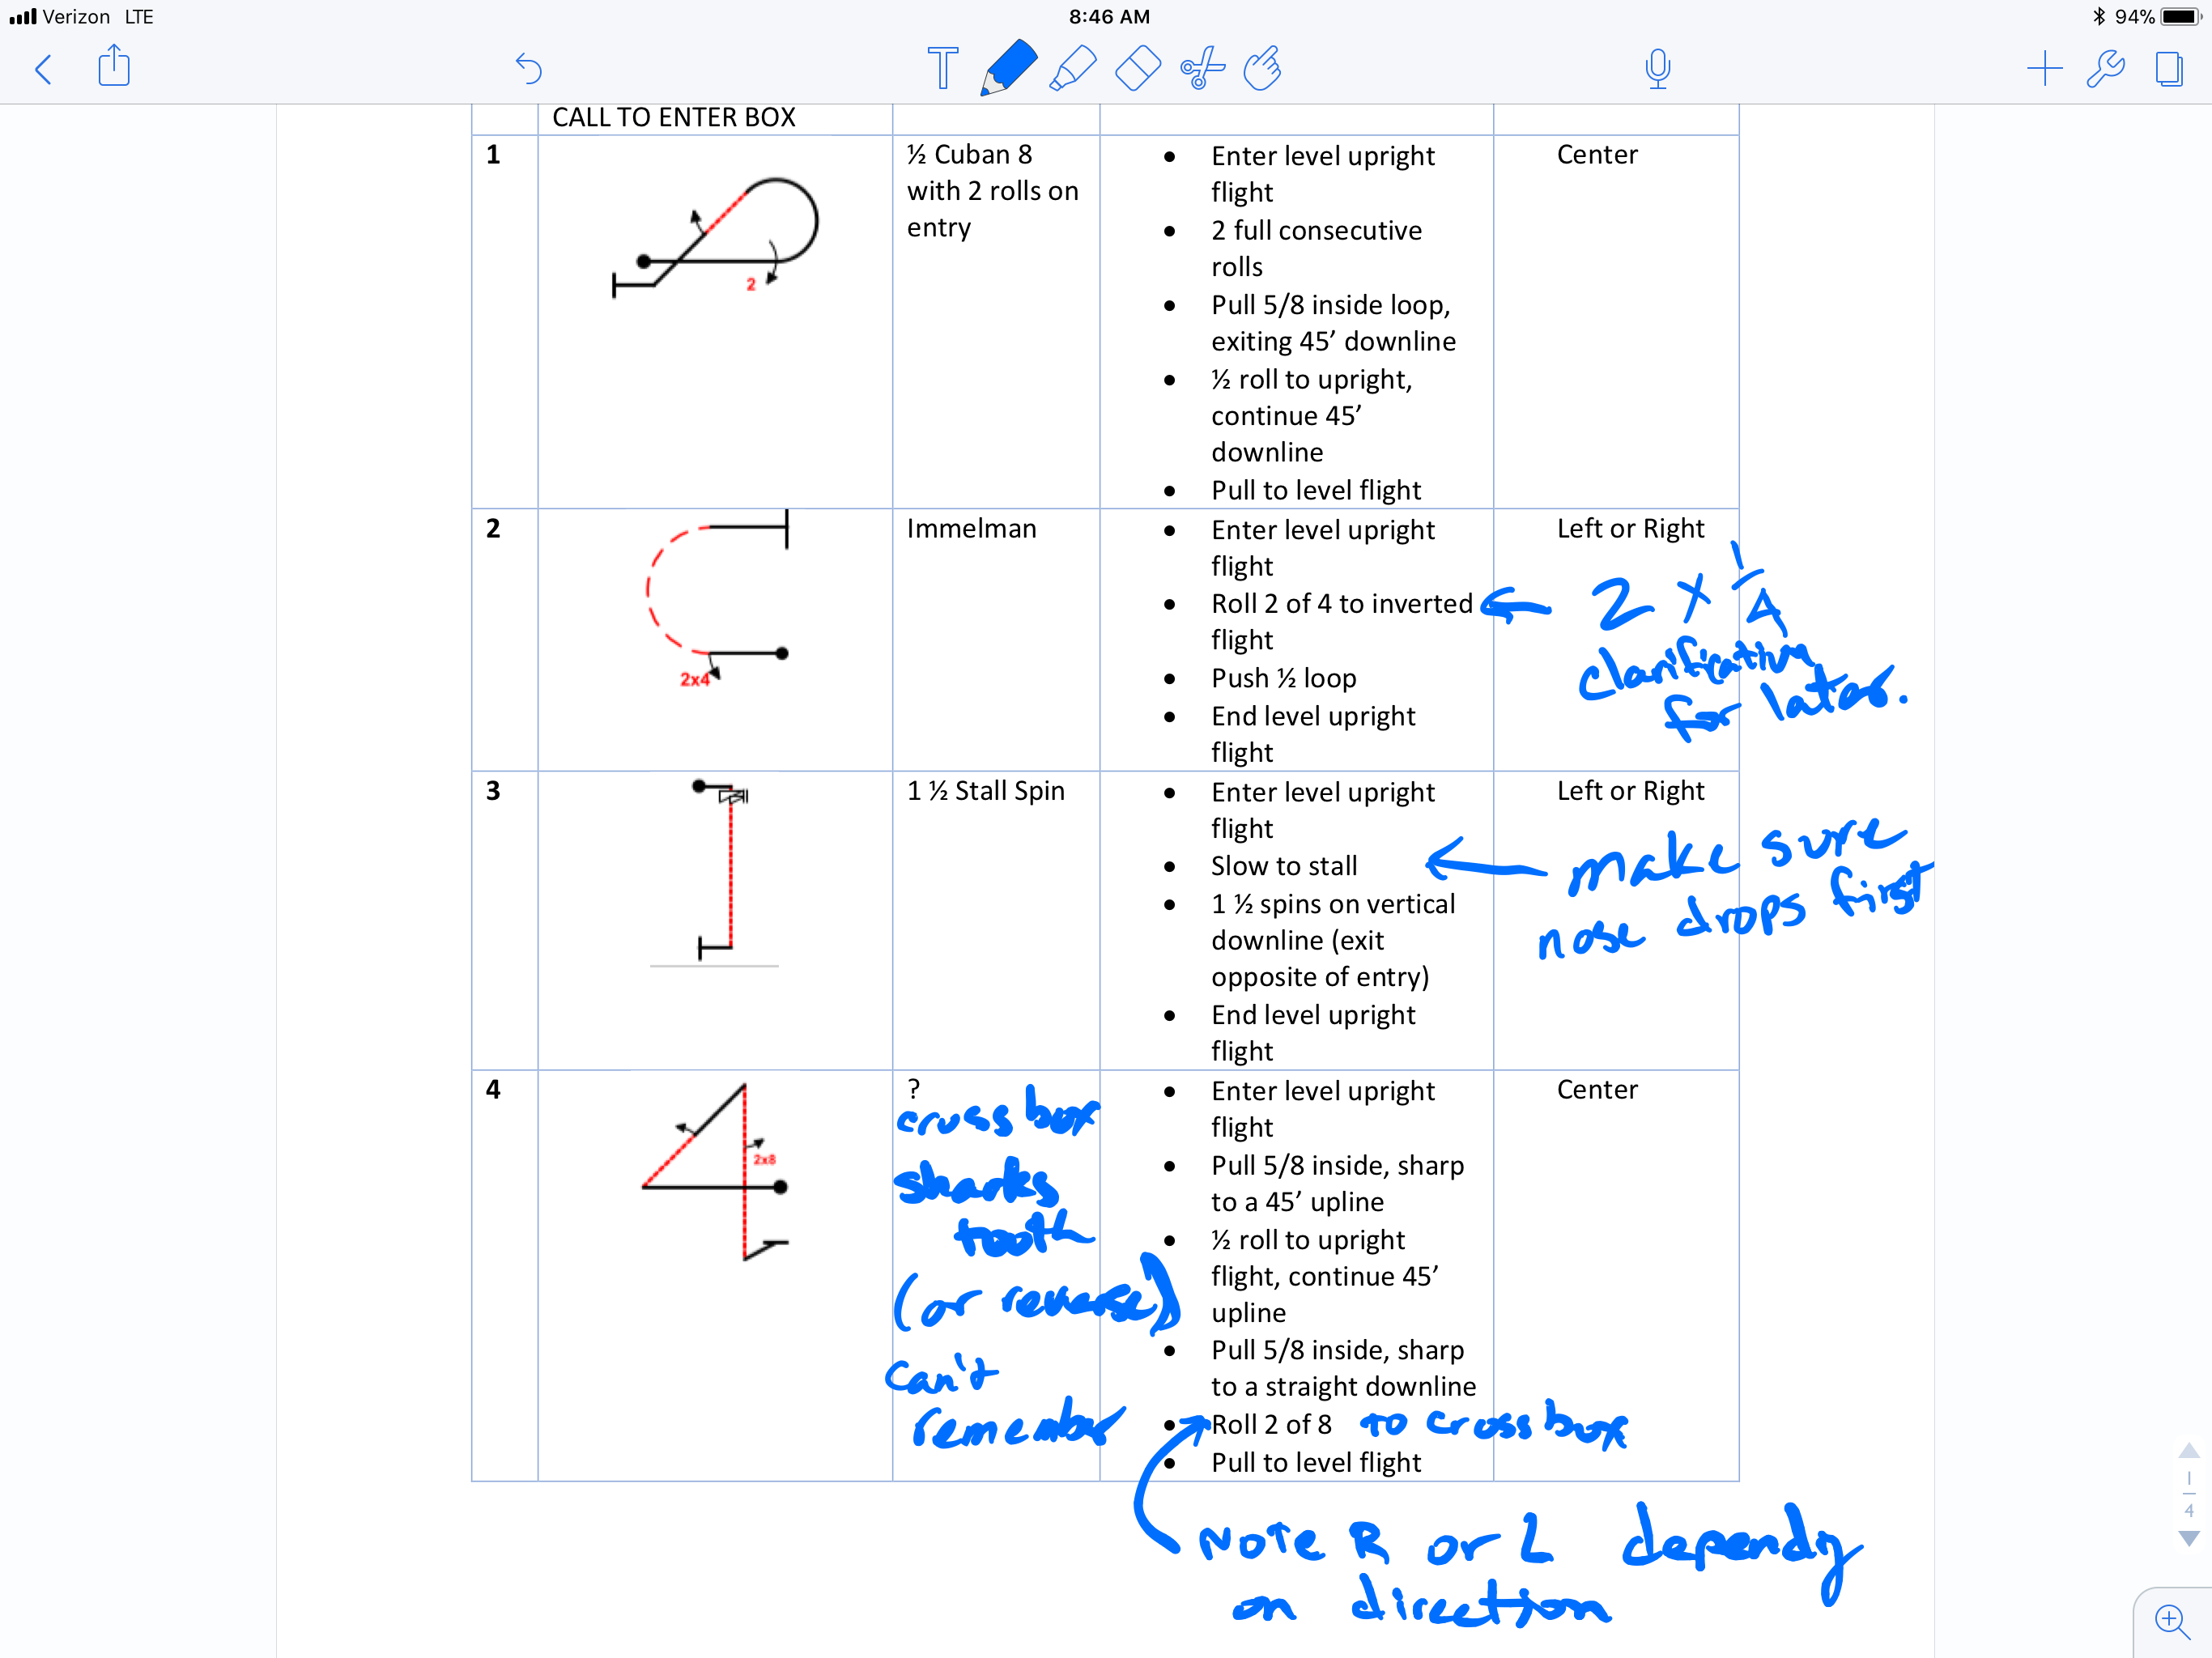 Verizon LTE
8:46 AM
94%
T
CALL TO ENTER BOX
1
2
½ Cuban 8
with 2 rolls on
entry
• Enter level upright
flight
• 2 full consecutive
rolls
• Pull 5/8 inside loop,
exiting 45’ downline
• ½ roll to upright,
continue 45’
downline
• Pull to level flight
Center
2
2x4
Immelman
• Enter level upright
flight
• Roll 2 of 4 to inverted
flight
• Push ½ loop
• End level upright
flight
Left or Right
2 x 1/4
clarification
for later.
3
1 ½ Stall Spin
• Enter level upright
flight
• Slow to stall
• 1 ½ spins on vertical
downline (exit
opposite of entry)
• End level upright
flight
Left or Right
make sure
nose drops first
4
2x8
?
cross box
sharks
tooth
(or reverse)
can't
remember
• Enter level upright
flight
• Pull 5/8 inside, sharp
to a 45’ upline
• ½ roll to upright
flight, continue 45’
upline
• Pull 5/8 inside, sharp
to a straight downline
• Roll 2 of 8 to cross box
• Pull to level flight
Center
NOTE R or L dependg
on direction
1
4